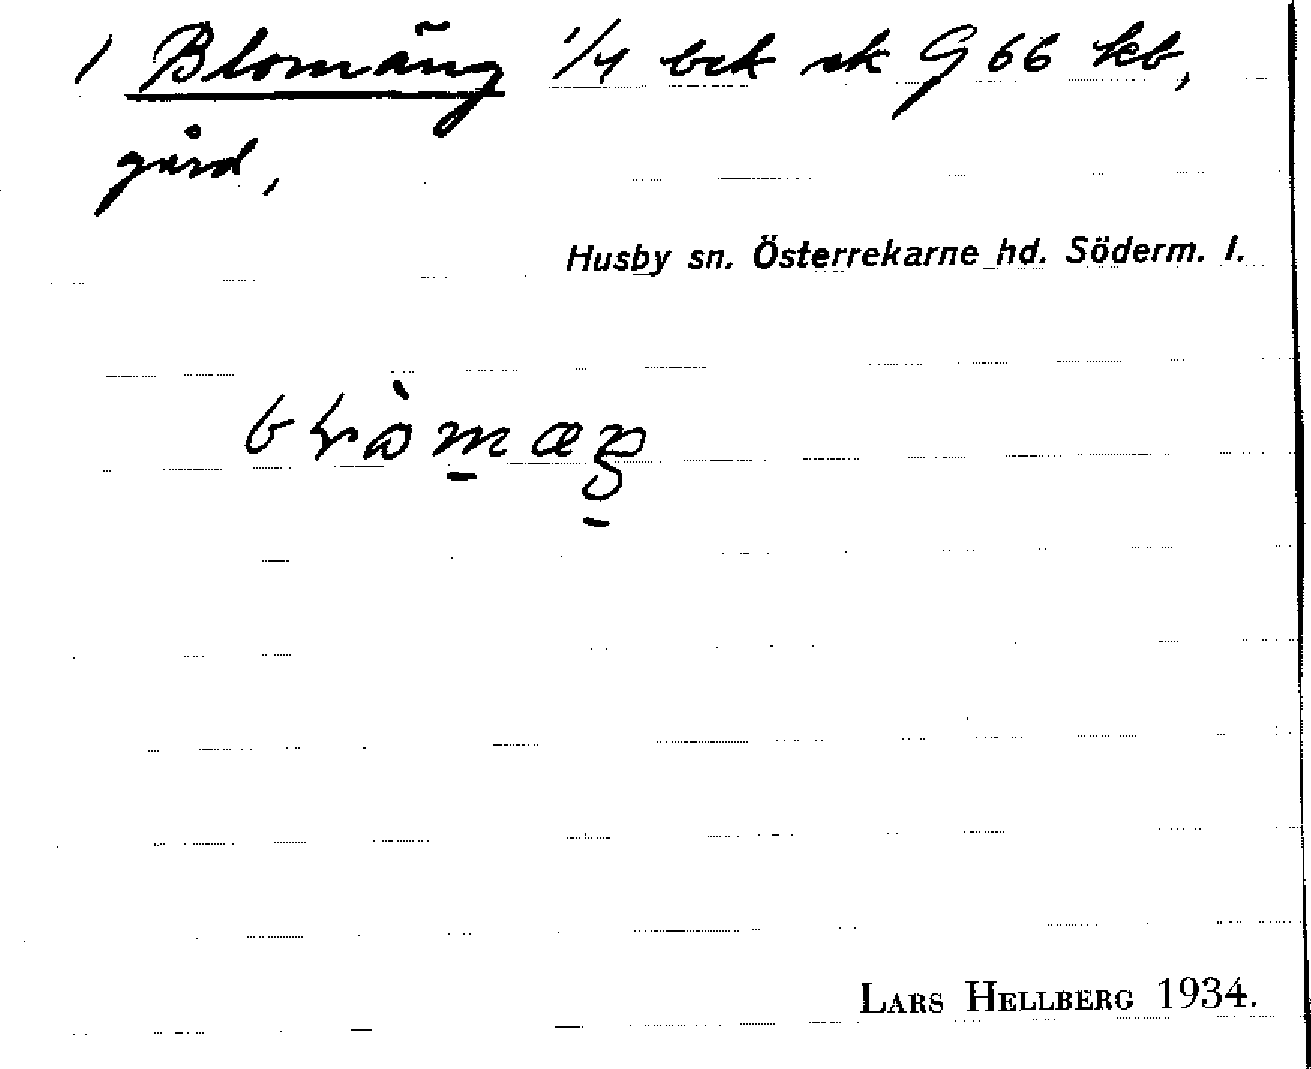 1 Blomäng 1/4 bck sk G 66 kb,
gård,
Husby sn. Österrekarne hd. Söderm. l.
LARS HELLBERG 1934.